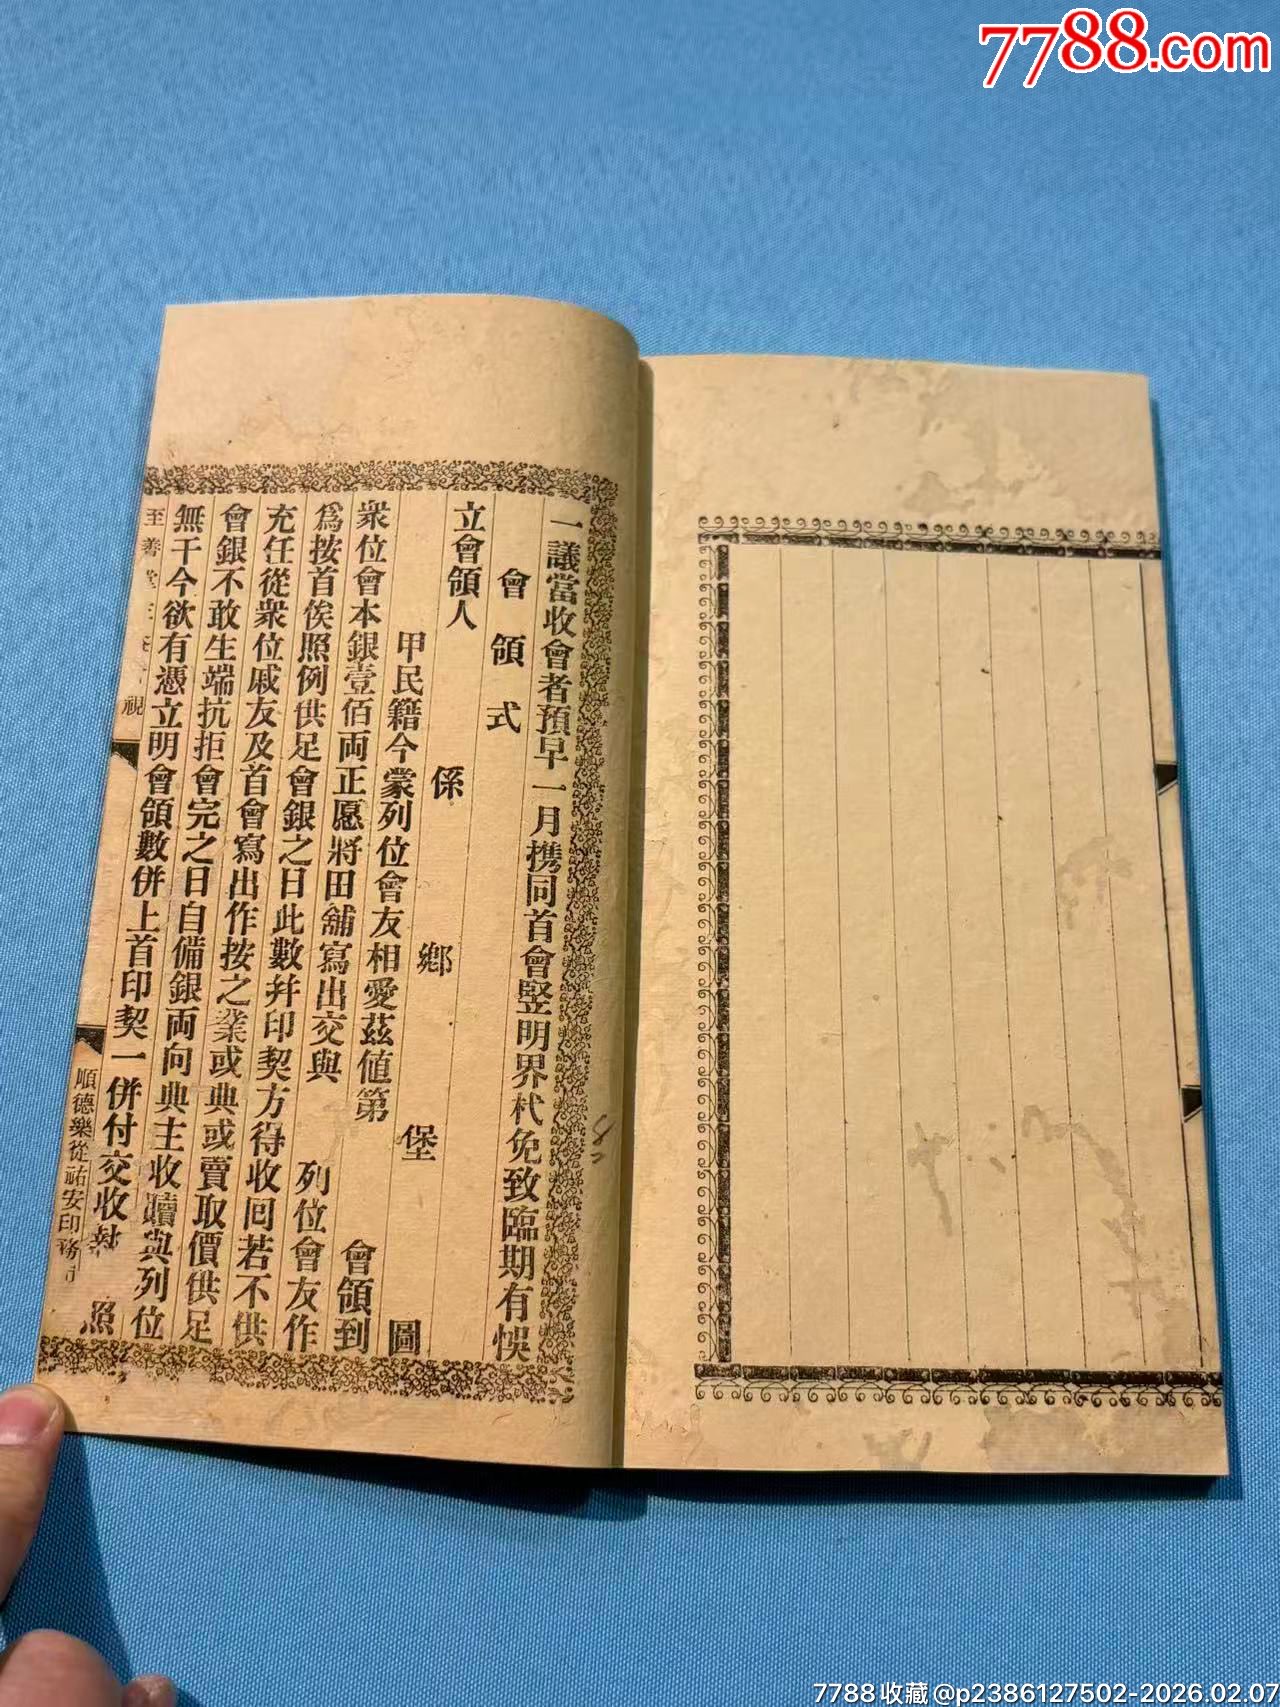 7788.com
一議當收會者預早一月携同首會竪明界杙免致臨期有悞
會領式
立會領人 係 鄉 堡 圖
甲民籍今蒙列位會友相愛茲值第 會領到
衆位會本銀壹佰両正愿將田舖寫出交與 列位會友作
爲按首俟照例供足會銀之日此數并印契方得收囘若不供
充任從衆位戚友及首會寫出作按之業或典或賣取價供足
會銀不敢生端抗拒會完之日自備銀両向典主收贖與列位
無干今欲有憑立明會領數併上首印契一併付交收執 照
至善堂 視
順德樂從祐安印務
7788收藏@p2386127502-2026.02.07